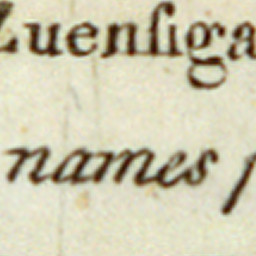 Zuenſiga
names